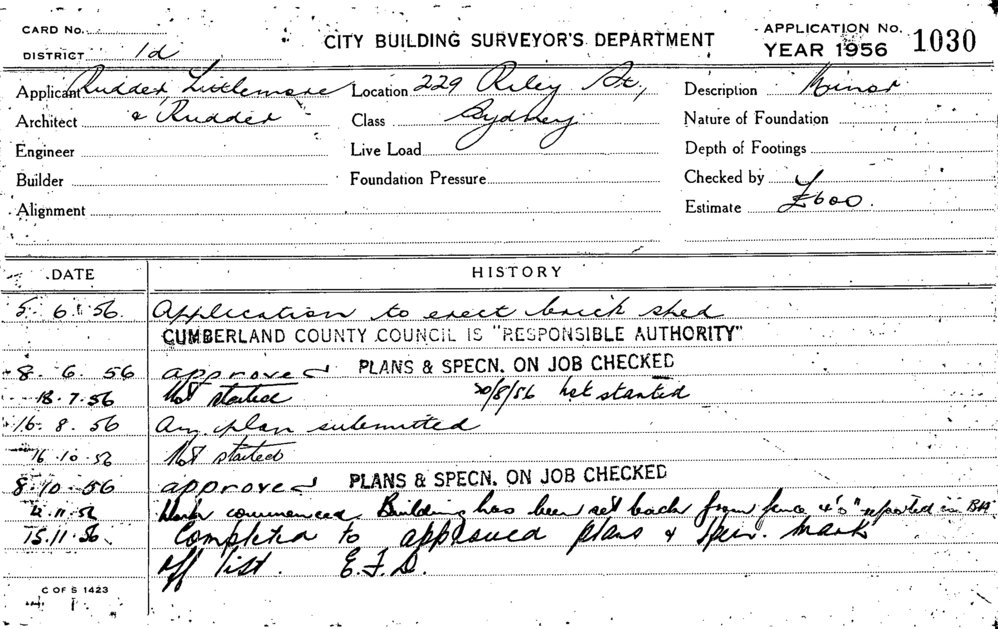 CARD No.
DISTRICT 1d
CITY BUILDING SURVEYOR'S DEPARTMENT
APPLICATION No. 1030
YEAR 1956
Applicant Rudder, Littlemore Location 229 Riley St., Description Minor
Architect & Rudder Class Sydney Nature of Foundation
Engineer Live Load Depth of Footings
Builder Foundation Pressure Checked by
Alignment Estimate £600.
DATE HISTORY
5. 6. 56. Application to erect brick shed
CUMBERLAND COUNTY COUNCIL IS "RESPONSIBLE AUTHORITY"
8. 6. 56 approved PLANS & SPECN. ON JOB CHECKED
18.7.56 Not started 20/8/56 Not started
16. 8. 56 Am. plan submitted
16.10.56 Not started
8.10.56 approved PLANS & SPECN. ON JOB CHECKED
11.56 Work commenced. Building has been set back from fence 4'0" reported in
15.11.56. Completed to approved plans & Spec. Mark
off list. E.F.D.
C OF S 1423